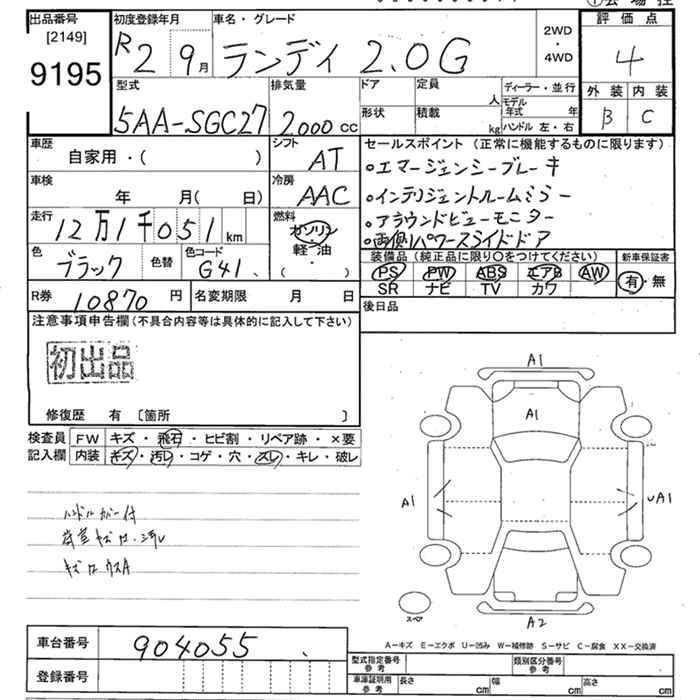 出品番号
[2149]
9195
初度登録年月
R2 9月
車名・グレード
ランディ 2.0G
2WD
・
4WD
評価点
4
外装 内装
B C
型式
5AA-SGC27
排気量
2000 cc
ドア
形状
定員
人
積載
kg
ディーラー・並行
モデル
年式 年
ハンドル 左・右
車歴
自家用・( )
シフト
AT
車検
年 月( 日)
冷房
AAC
走行
12万1千051km
燃料
ガソリン
軽・油
・( )
色
ブラック
色替
色コード
G41
R券
10870円
名変期限 月 日
セールスポイント(正常に機能するものに限ります)
○エマージェンシーブレーキ
○インテリジェントルームミラー
○アラウンドビューモニター
○両側パワースライドドア
装備品(純正品に限り〇をつけてください)
新車保証書
PS PW ABS エアB AW
SR ナビ TV カワ
有・無
後日品
注意事項申告欄(不具合内容等は具体的に記入して下さい)
初出品
修復歴 有 〔箇所 〕
検査員
記入欄
FW キズ・飛石・ヒビ割・リペア跡・×要
内装 キズ・汚レ・コゲ・穴・スレ・キレ・破レ
ハンドルカバー付
荷室キズ小・汚レ
キズ小ウスA
A1
A1
A1
UA1
A2
スペア
車台番号
904055
登録番号
A-キズ E-エクボ U-凹み W-補修跡 S-サビ C-腐食 XX-交換済
型式指定番号
参考
類別区分番号
参考
車庫証明用
参考
長さ cm
幅 cm
高さ cm